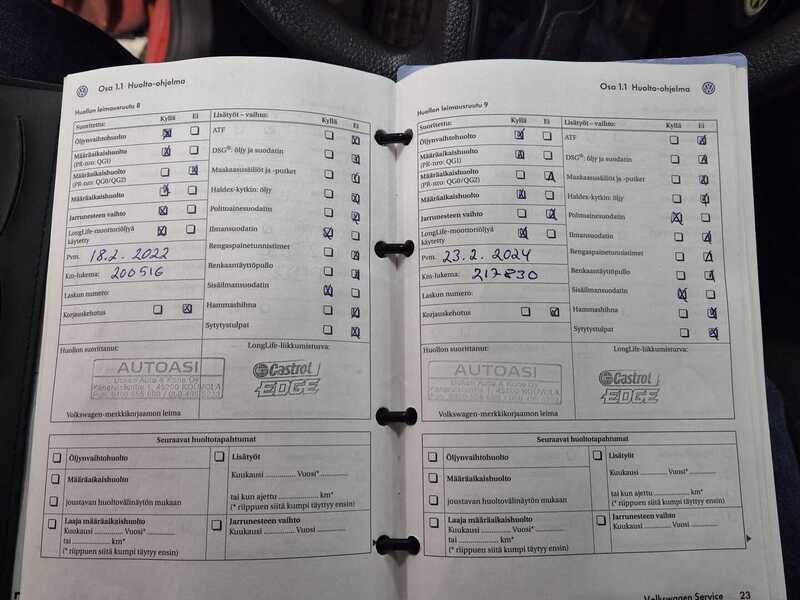 Osa 1.1 Huolto-ohjelma
Huollon leimausruutu 8
Suoritettu: Kyllä Ei
Öljynvaihtohuolto
Määräaikaishuolto
(PR-nro: QG1)
Määräaikaishuolto
(PR-nro: QG0/QG2)
Määräaikaishuolto
Jarrunesteen vaihto
LongLife-moottoriöljyä
käytetty
Pvm. 18.2.2022
Km-lukema: 200516
Laskun numero:
Korjauskehotus
Lisätyöt – vaihto: Kyllä Ei
ATF
DSG®: öljy ja suodatin
Maakaasusäiliöt ja -putket
Haldex-kytkin: öljy
Polttoainesuodatin
Ilmansuodatin
Rengaspainetunnistimet
Benkaantäyttöpullo
Sisäilmansuodatin
Hammashihna
Sytytystulpat
Huollon suorittanut:
AUTOASI
45200 KOUVOLA
Volkswagen-merkkikorjaamon leima
LongLife-liikkumisturva:
Castrol
EDGE
Seuraavat huoltotapahtumat
Öljynvaihtohuolto
Määräaikaishuolto
joustavan huoltovälinäytön mukaan
Laaja määräaikaishuolto
Kuukausi ............ Vuosi* ............
tai ............ km*
(* riippuen siitä kumpi täytyy ensin)
Lisätyöt
Kuukausi ............ Vuosi* ............
tai kun ajettu ............ km*
(* riippuen siitä kumpi täytyy ensin)
Jarrunesteen vaihto
Kuukausi ............ Vuosi ............
Osa 1.1 Huolto-ohjelma
Huollon leimausruutu 9
Suoritettu: Kyllä Ei
Öljynvaihtohuolto
Määräaikaishuolto
(PR-nro: QG1)
Määräaikaishuolto
(PR-nro: QG0/QG2)
Määräaikaishuolto
Jarrunesteen vaihto
LongLife-moottoriöljyä
käytetty
Pvm. 23.2.2024
Km-lukema: 217830
Laskun numero:
Korjauskehotus
Lisätyöt – vaihto: Kyllä Ei
ATF
DSG®: öljy ja suodatin
Maakaasusäiliöt ja -putket
Haldex-kytkin: öljy
Polttoainesuodatin
Ilmansuodatin
Rengaspainetunnistimet
Benkaantäyttöpullo
Sisäilmansuodatin
Hammashihna
Sytytystulpat
Huollon suorittanut:
AUTOASI
45200 KOUVOLA
Volkswagen-merkkikorjaamon leima
LongLife-liikkumisturva:
Castrol
EDGE
Seuraavat huoltotapahtumat
Öljynvaihtohuolto
Määräaikaishuolto
joustavan huoltovälinäytön mukaan
Laaja määräaikaishuolto
Kuukausi ............ Vuosi* ............
tai ............ km*
(* riippuen siitä kumpi täytyy ensin)
Lisätyöt
Kuukausi ............ Vuosi* ............
tai kun ajettu ............ km*
(* riippuen siitä kumpi täytyy ensin)
Jarrunesteen vaihto
Kuukausi ............ Vuosi ............
Volkswagen Service 23